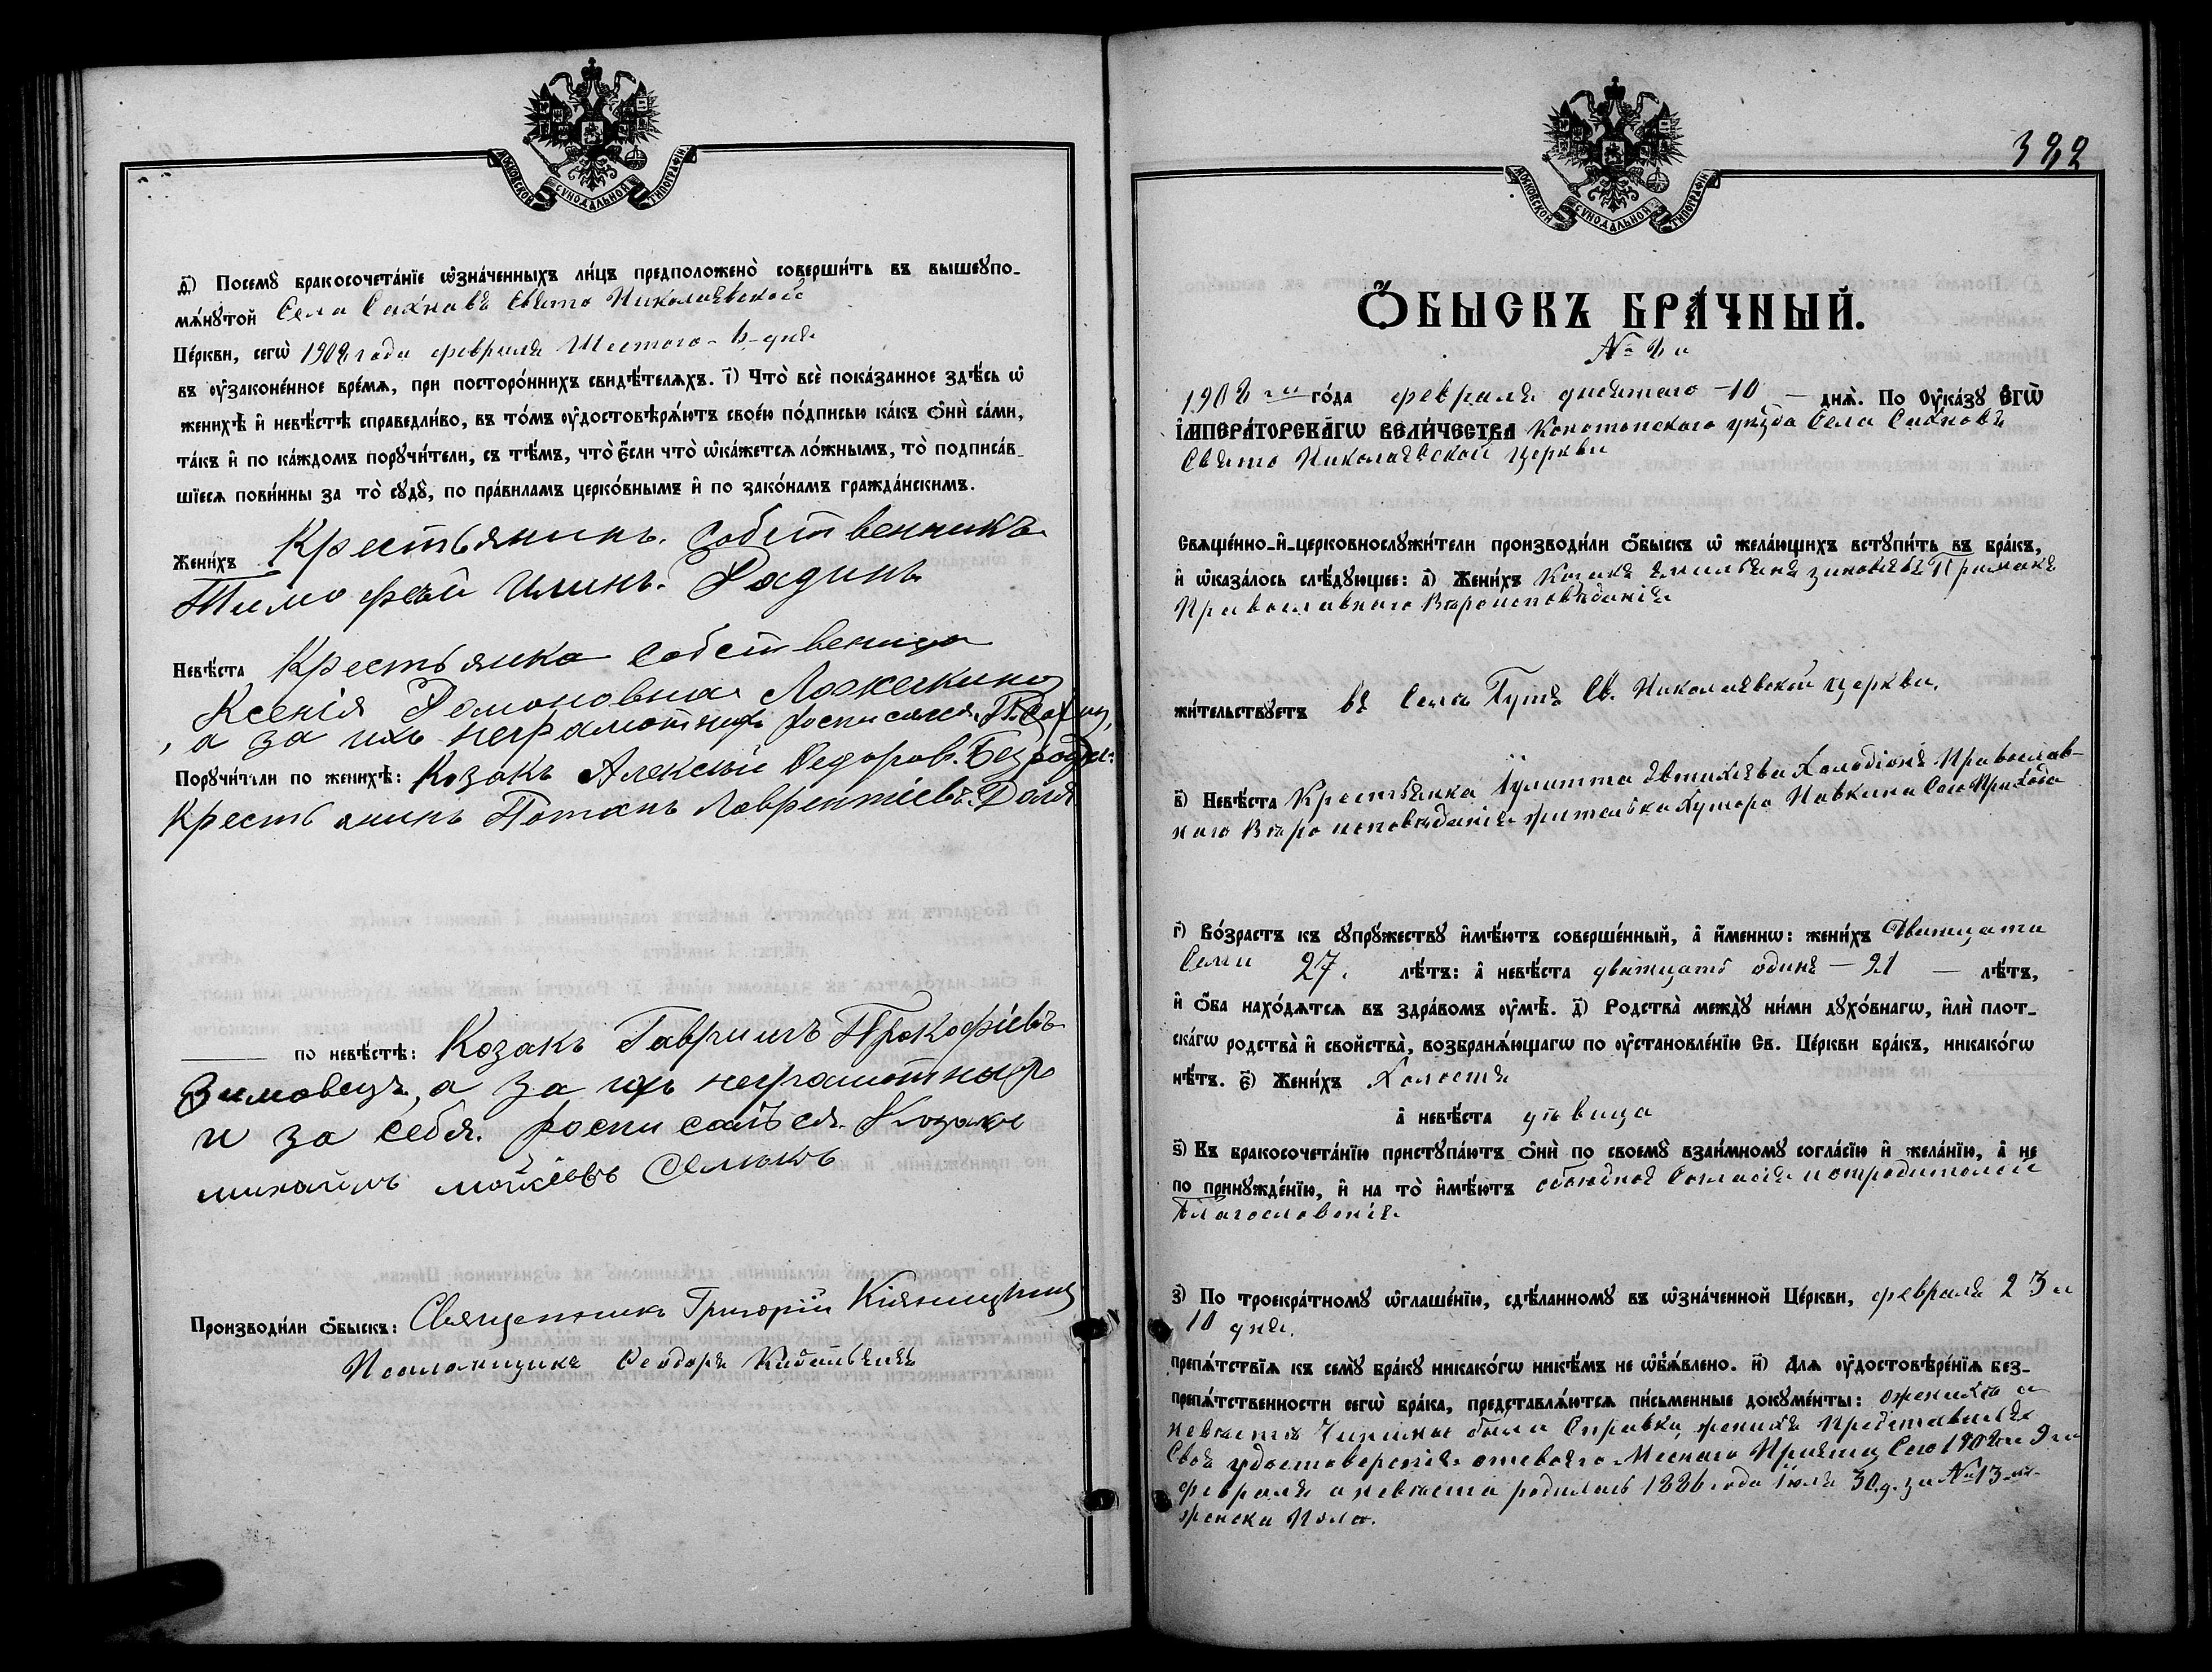 МОСКОВСКОЙ СУНОДАЛЬНОЙ ТИПОГРАФІИ
д҃) Посемꙋ̀ бракосочета́нїе ѡ҆зна́ченныхъ ли́цъ предположено̀ соверши́ть въ вышеꙋпо-
мѧ́нꙋтой Села Сахновъ Свято Николаевской
Це́ркви, сегѡ̀ 1908 года февраля Шестого - 6 - дня
въ ᲂу҆законе́нное вре́мѧ, при посторо́ннихъ свидѣ́телѧхъ. і҃) Что̀ всѐ пока́занное здѣ́сь ѡ҆
женихѣ̀ и҆ невѣ́стѣ справедли́во, въ то́мъ ᲂу҆достовѣрѧ́ютъ свое́ю по́дписью ка́къ ѻ҆нѝ са́ми,
та́къ и҆ по ка́ждомъ порꙋчи́тели, съ тѣ́мъ, что̀ є҆́сли что̀ ѡ҆ка́жетсѧ ло́жнымъ, то̀ подписа́в-
шїесѧ пови́нны за то̀ сꙋдꙋ̀, по пра́виламъ церко́внымъ и҆ по зако́намъ гражда́нскимъ.
Жени́хъ Крестьянинъ. Собственникъ
Тимофей Илинъ. Радинъ
Невѣ́ста Крестьянка собственица
Ксенія Романовна Ложечкина
, а за ихъ неграмотныхъ росписался
Порꙋчи́тели по женихѣ̀: Козакъ Алексѣй Федоровъ
Крестьянинъ Потапъ Лаврентіевъ Доля
по невѣ́стѣ: Козакъ Гавриилъ Прокофіевъ
Зимовецъ, а за ихъ неграмотныхъ
и за себя. росписался. Козакъ
михаилъ мойсѣевъ
Производи́ли ѻ҆́быскъ: Священникъ Григорій
Псаломщикъ Феодоръ
МОСКОВСКОЙ СУНОДАЛЬНОЙ ТИПОГРАФІИ
Ѻ҆́БЫСКЪ БРА́ЧНЫЙ.
1908 го го́да февраля десятого - 10 - днѧ̀. По Оу҆ка́зꙋ Є҆ГѠ̀
І҆МПЕРА́ТОРСКАГѠ ВЕЛИ́ЧЕСТВА Конотопскаго уѣзда Села Сахновъ
Свято Николаевской церкви
Свѧще́нно-и҆-церковнослꙋжи́тели производи́ли ѻ҆́быскъ ѡ҆ жела́ющихъ встꙋпи́ть въ бра́къ,
и҆ ѡ҆каза́лось слѣ́дꙋющее: а҃) Жени́хъ Козакъ Емильянъ Зиновіевъ Примакъ
Православнаго Вѣроисповѣданія
жи́тельствꙋетъ въ Селѣ Гутѣ Св. Николаевской церкви.
в҃) Невѣ́ста Крестьянка Іулитта Евтихіева Холодіонъ Православ-
наго Вѣроисповѣданія жителька Хутора Павкина Сего Прихода
г҃) Во́зрастъ къ сꙋпрꙋ́жествꙋ и҆мѣ́ютъ соверше́нный, а҆ и҆́меннѡ: жени́хъ Двацати
Семи 27. лѣ́тъ: а҆ невѣ́ста двацать одинъ - 21 - лѣ́тъ,
и҆ ѻ҆́ба нахо́дѧтсѧ въ здра́вомъ ᲂу҆мѣ̀. д҃) Родства̀ междꙋ̀ ни́ми дꙋхо́внагѡ, и҆лѝ плот-
ска́гѡ родства̀ и҆ свойства̀, возбранѧ́ющагѡ по ᲂу҆становле́нїю Св. Це́ркви бра́къ, никако́гѡ
нѣ́тъ. є҃) Жени́хъ Холостъ
а҆ невѣ́ста дѣвица
ѕ҃) Къ бракосочета́нїю пристꙋпа́ютъ ѻ҆нѝ по своемꙋ̀ взаи́мномꙋ согла́сїю и҆ жела́нїю, а҆ не
по принꙋжде́нїю, и҆ на то̀ и҆мѣ́ютъ обоюдное Согласіе и отродителей
Благословеніе
з҃) По троекра́тномꙋ ѡ҆глаше́нїю, сдѣ́ланномꙋ въ ѡ҆зна́ченной Це́ркви, февраля 2 3 и
10 дня.
препѧ́тствїѧ къ семꙋ̀ бра́кꙋ никако́гѡ никѣ́мъ не ѡ҆б̾ѧ́влено. и҃) Длѧ ᲂу҆достовѣре́нїѧ без-
препѧ́тственности сегѡ̀ бра́ка, представлѧ́ютсѧ пи́сьменные докꙋме́нты: ожениха и
невѣста Чинимы были Справки, женихъ Представилъ
Своѣ удостовереніе
февраля а невѣста родилась 1886 года Іюля 30. д. за № 13
женска Пола.